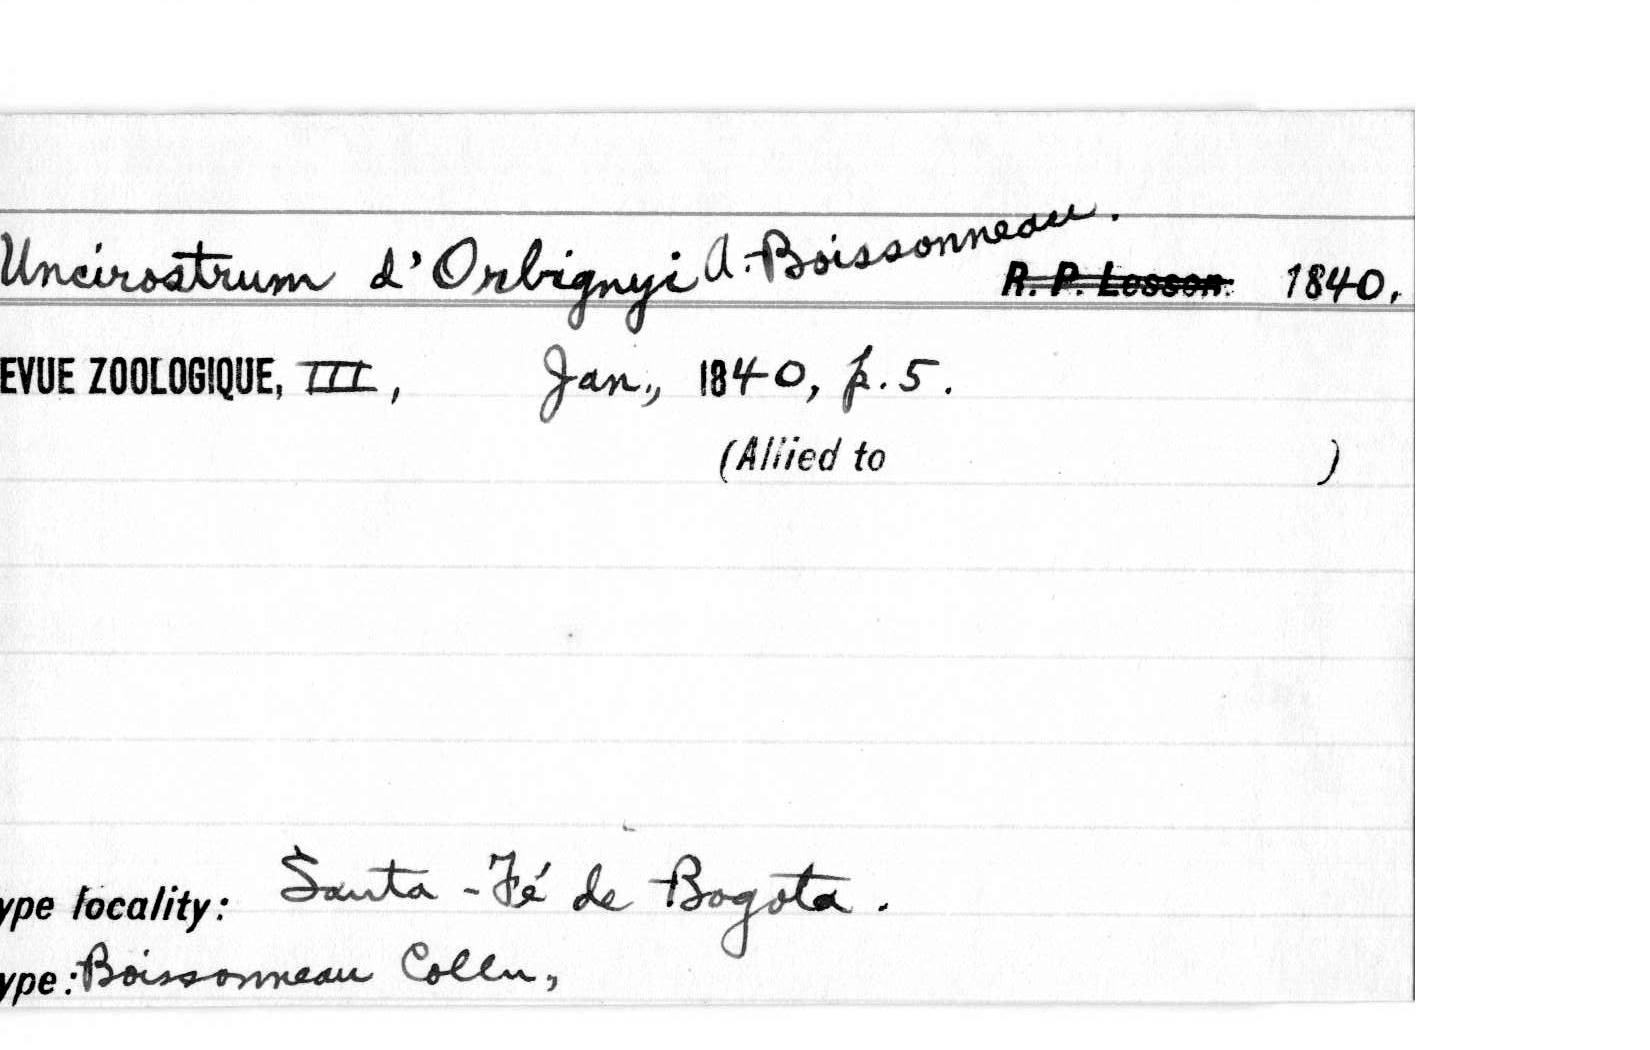 Uncirostrum d'Orbignyi A. Boissonneau.
R. P. Lesson. 1840.
EVUE ZOOLOGIQUE, III, Jan., 1840, p. 5.
(Allied to )
ype locality: Santa-Fé de Bogota.
ype: Boissonneau Colln,